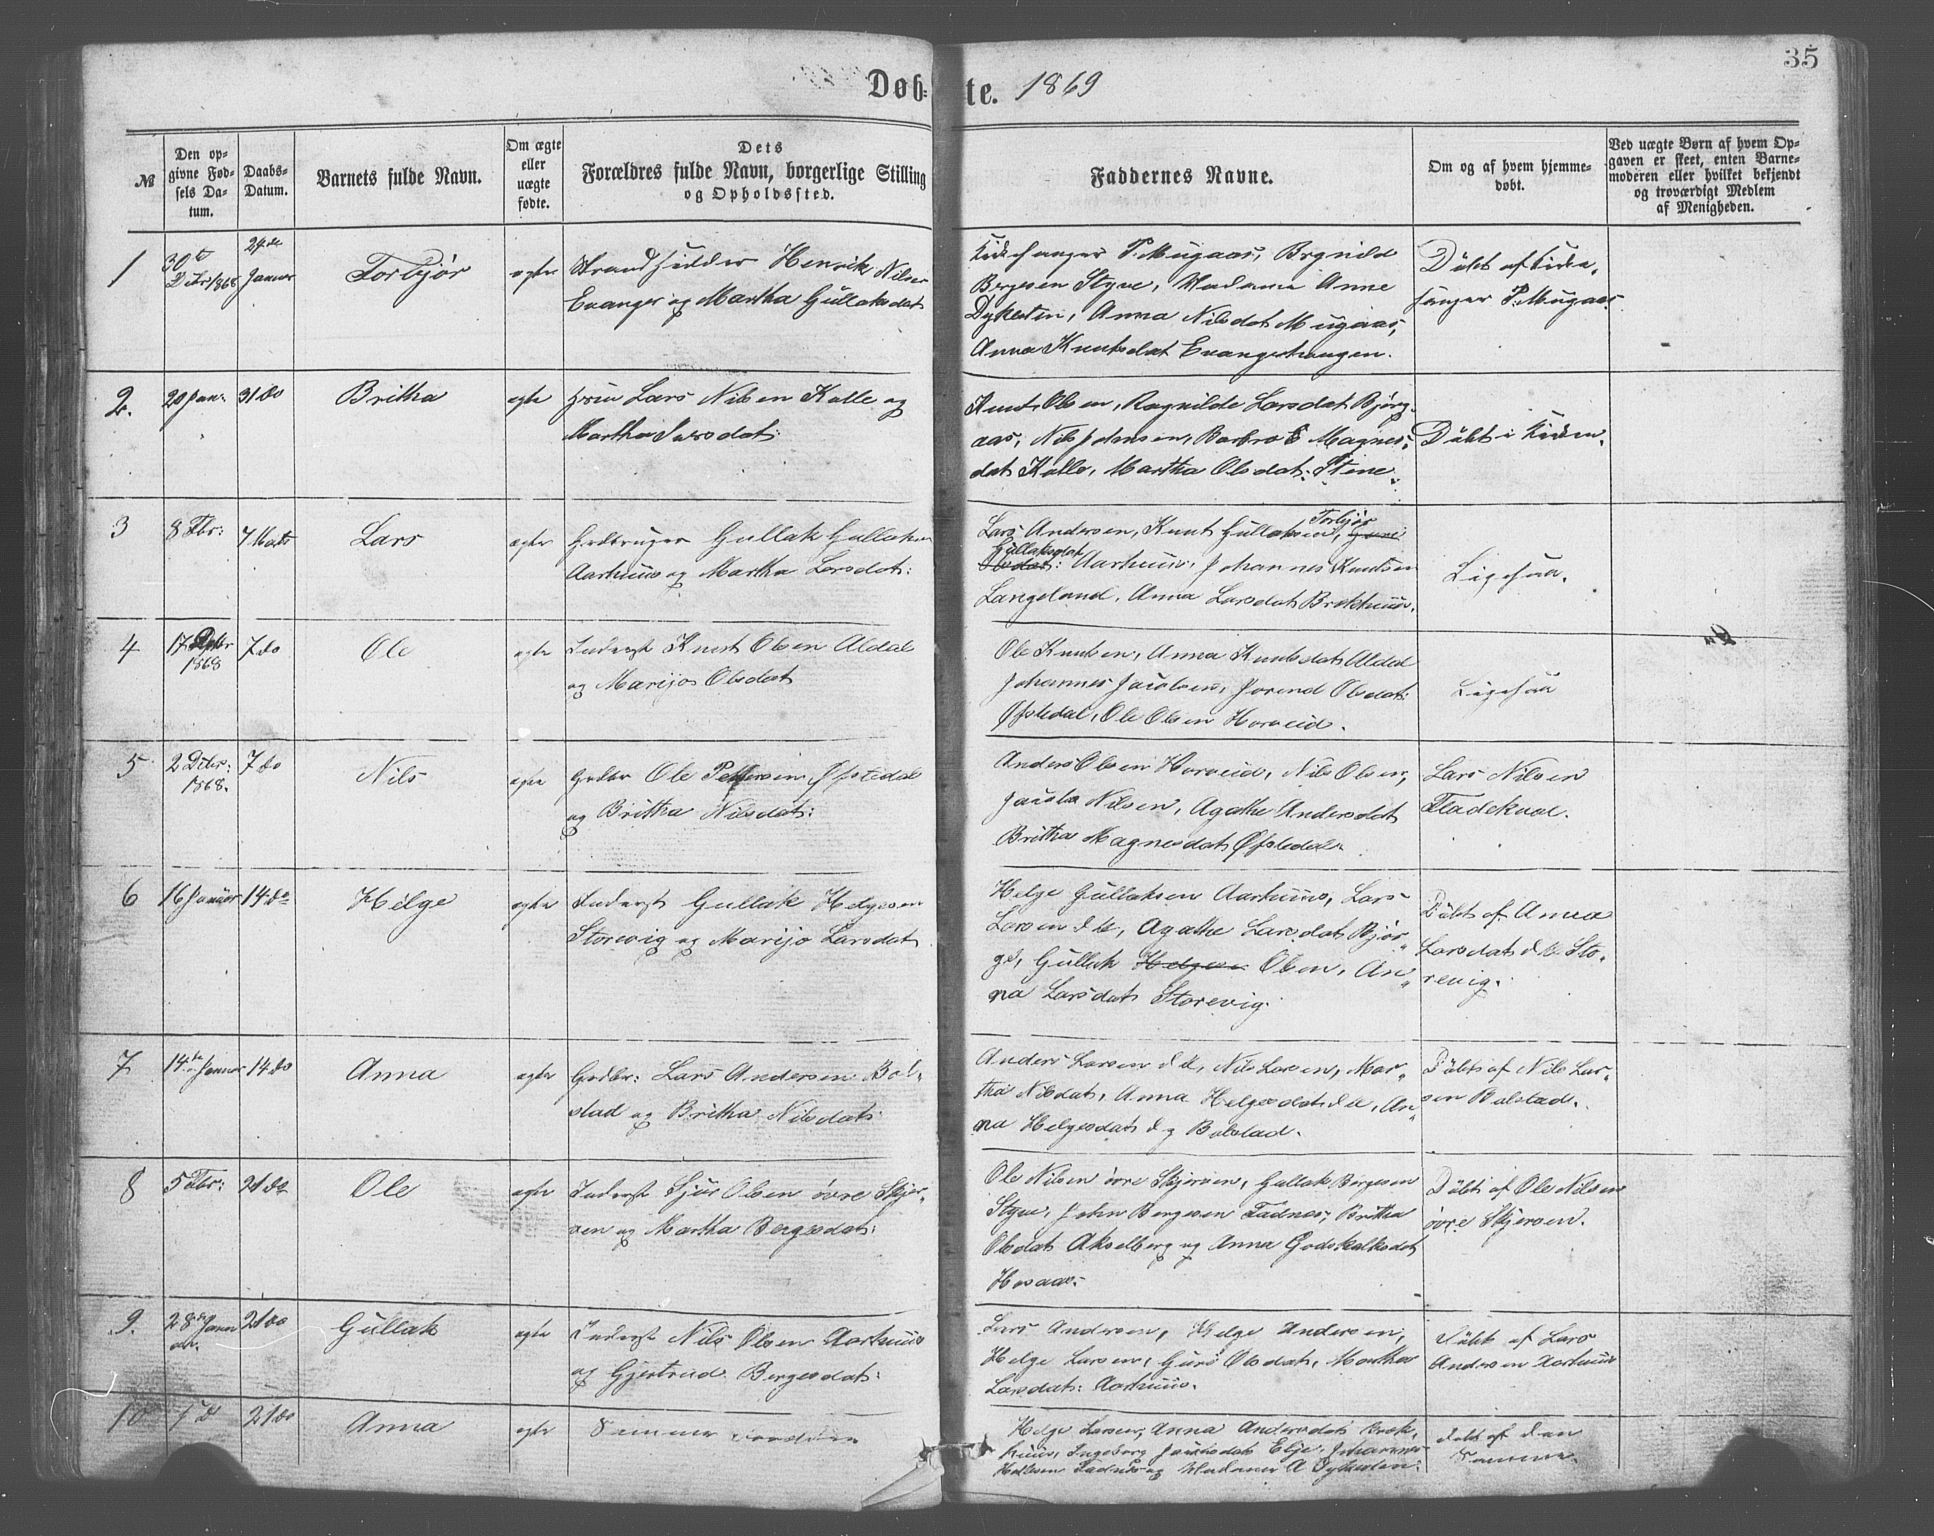 35
Døb-te. 1869
№
Den op-
givne Fød-
sels Da-
tum.
Daabs-
Datum.
Barnets fulde Navn.
Om ægte
eller
uægte
fødte.
Dets
Forældres fulde Navn, borgerlige Stilling
og Opholdssted.
Faddernes Navne.
Om og af hvem hjemme-
døbt.
Ved uægte Børn af hvem Op-
gaven er skeet, enten Barne-
moderen eller hvilket bekjendt
og troværdigt Medlem
af Menigheden.
1
30te Dcbr 1868
24de Januar
Torbjør
ægte
Strandsidder Henrik Nilsen
Evanger og Martha Gullaksdat
Kirkesanger P. Mugaas, Brynild
Bergesen Styve, Madame Anne
Dykesten, Anna Nilsdat Mugaas,
Anna Knutsdat Evangerhaugen.
Døbt af Kirke-
sanger P. Mugaas
2.
20 Jan:
31 do
Britha
ægte
Lars Nilsen Kalle og
Martha Larsdat:
Knut Olsen, Ragnilde Larsdat Bjørg-
aas, Nils Johnsen, Barbro Magnes-
dat Kalle, Martha Olsdat: Stene.
Døbt i Kirken.
3
8 Fbr:
7 Marts
Lars
ægte
Gullak Gullaksen
Aarhuus og Martha Larsdat:
Lars Andersen, Knut Gullaksen, Torbjør
Gullaksdat: Aarhuus, Johannes Knutsen
Langeland, Anna Larsdat Brekhuus.
Ligesaa.
4
17 Dcbr
1868
7 do
Ole
ægte
Inderst Knut Olsen Aldal
og Marijo Olsdat
Ole Knutsen, Anna Knutsdat Aldal
Johannes Jacobsen, Jorend Olsdat:
Øfstedal, Ole Olsen Horveid.
Ligesaa
5
2 Dcbr:
1868.
7 do
Nils
ægte
Gbr Ole Pettersen Øfstedal
og Britha Nilsdat:
Anders Olsen Horveid, Nils Olsen,
Jacob Nilsen, Agathe Andersdat
Britha Magnesdat Øfstedal.
Lars Nilsen
Fladekval.
6
16 Januar
14 do
Helge
ægte
Inderst Gullak Helgesen
Storevig og Marijo Larsdat
Helge Gullaksen Aarhuus, Lars
Larsen d. æ., Agathe Larsdat Bjør-
ge, Gullak Helgesen Olsen, An-
na Larsdat Storevig.
Døbt af Anna
Larsdat d. æ. Sto-
revig.
7
14de Januar
14 do
Anna
ægte
Gdbr: Lars Andersen Bol-
stad og Britha Nilsdat:
Anders Larsen d. æ., Nils Larsen, Mar-
tha Nilsdat, Anna Helgesdat d. æ., An-
na Helgesdat d. y. Bolstad.
Døbt af Nils Lar-
sen Bolstad.
8
5 Fbr:
21 do
Ole
ægte
Inderst Sjur Olsen øvre Skjer-
ven og Martha Bergesdat:
Ole Nilsen øvre Skjerven, Gullak Bergesen
Styve, John Bergesen Fadnes, Britha
Olsdat Akselberg og Anna Godskalksdat
Horaas.
Døbt af Ole Nilsen
øvre Skjerven.
9.
28de Janu
ar.
21 do
Gullak
ægte
Inderst Nils Olsen Aarhuus
og Gjertrud Bergesdat:
Lars Andersen, Helge Andersen,
Helge Larsen, Guro Olsdat, Martha
Larsdat: Aarhuus.
Døbt af Lars
Andersen Aarhuus
10
21 do
Anna
ægte
Samme Forældre
Helge Larsen, Anna Andersdat Brek-
huus, Ingeborg Jacobsdat Elje, Johannes
Fadnes og Madame A Dykesten.
Døbt af den
Samme.